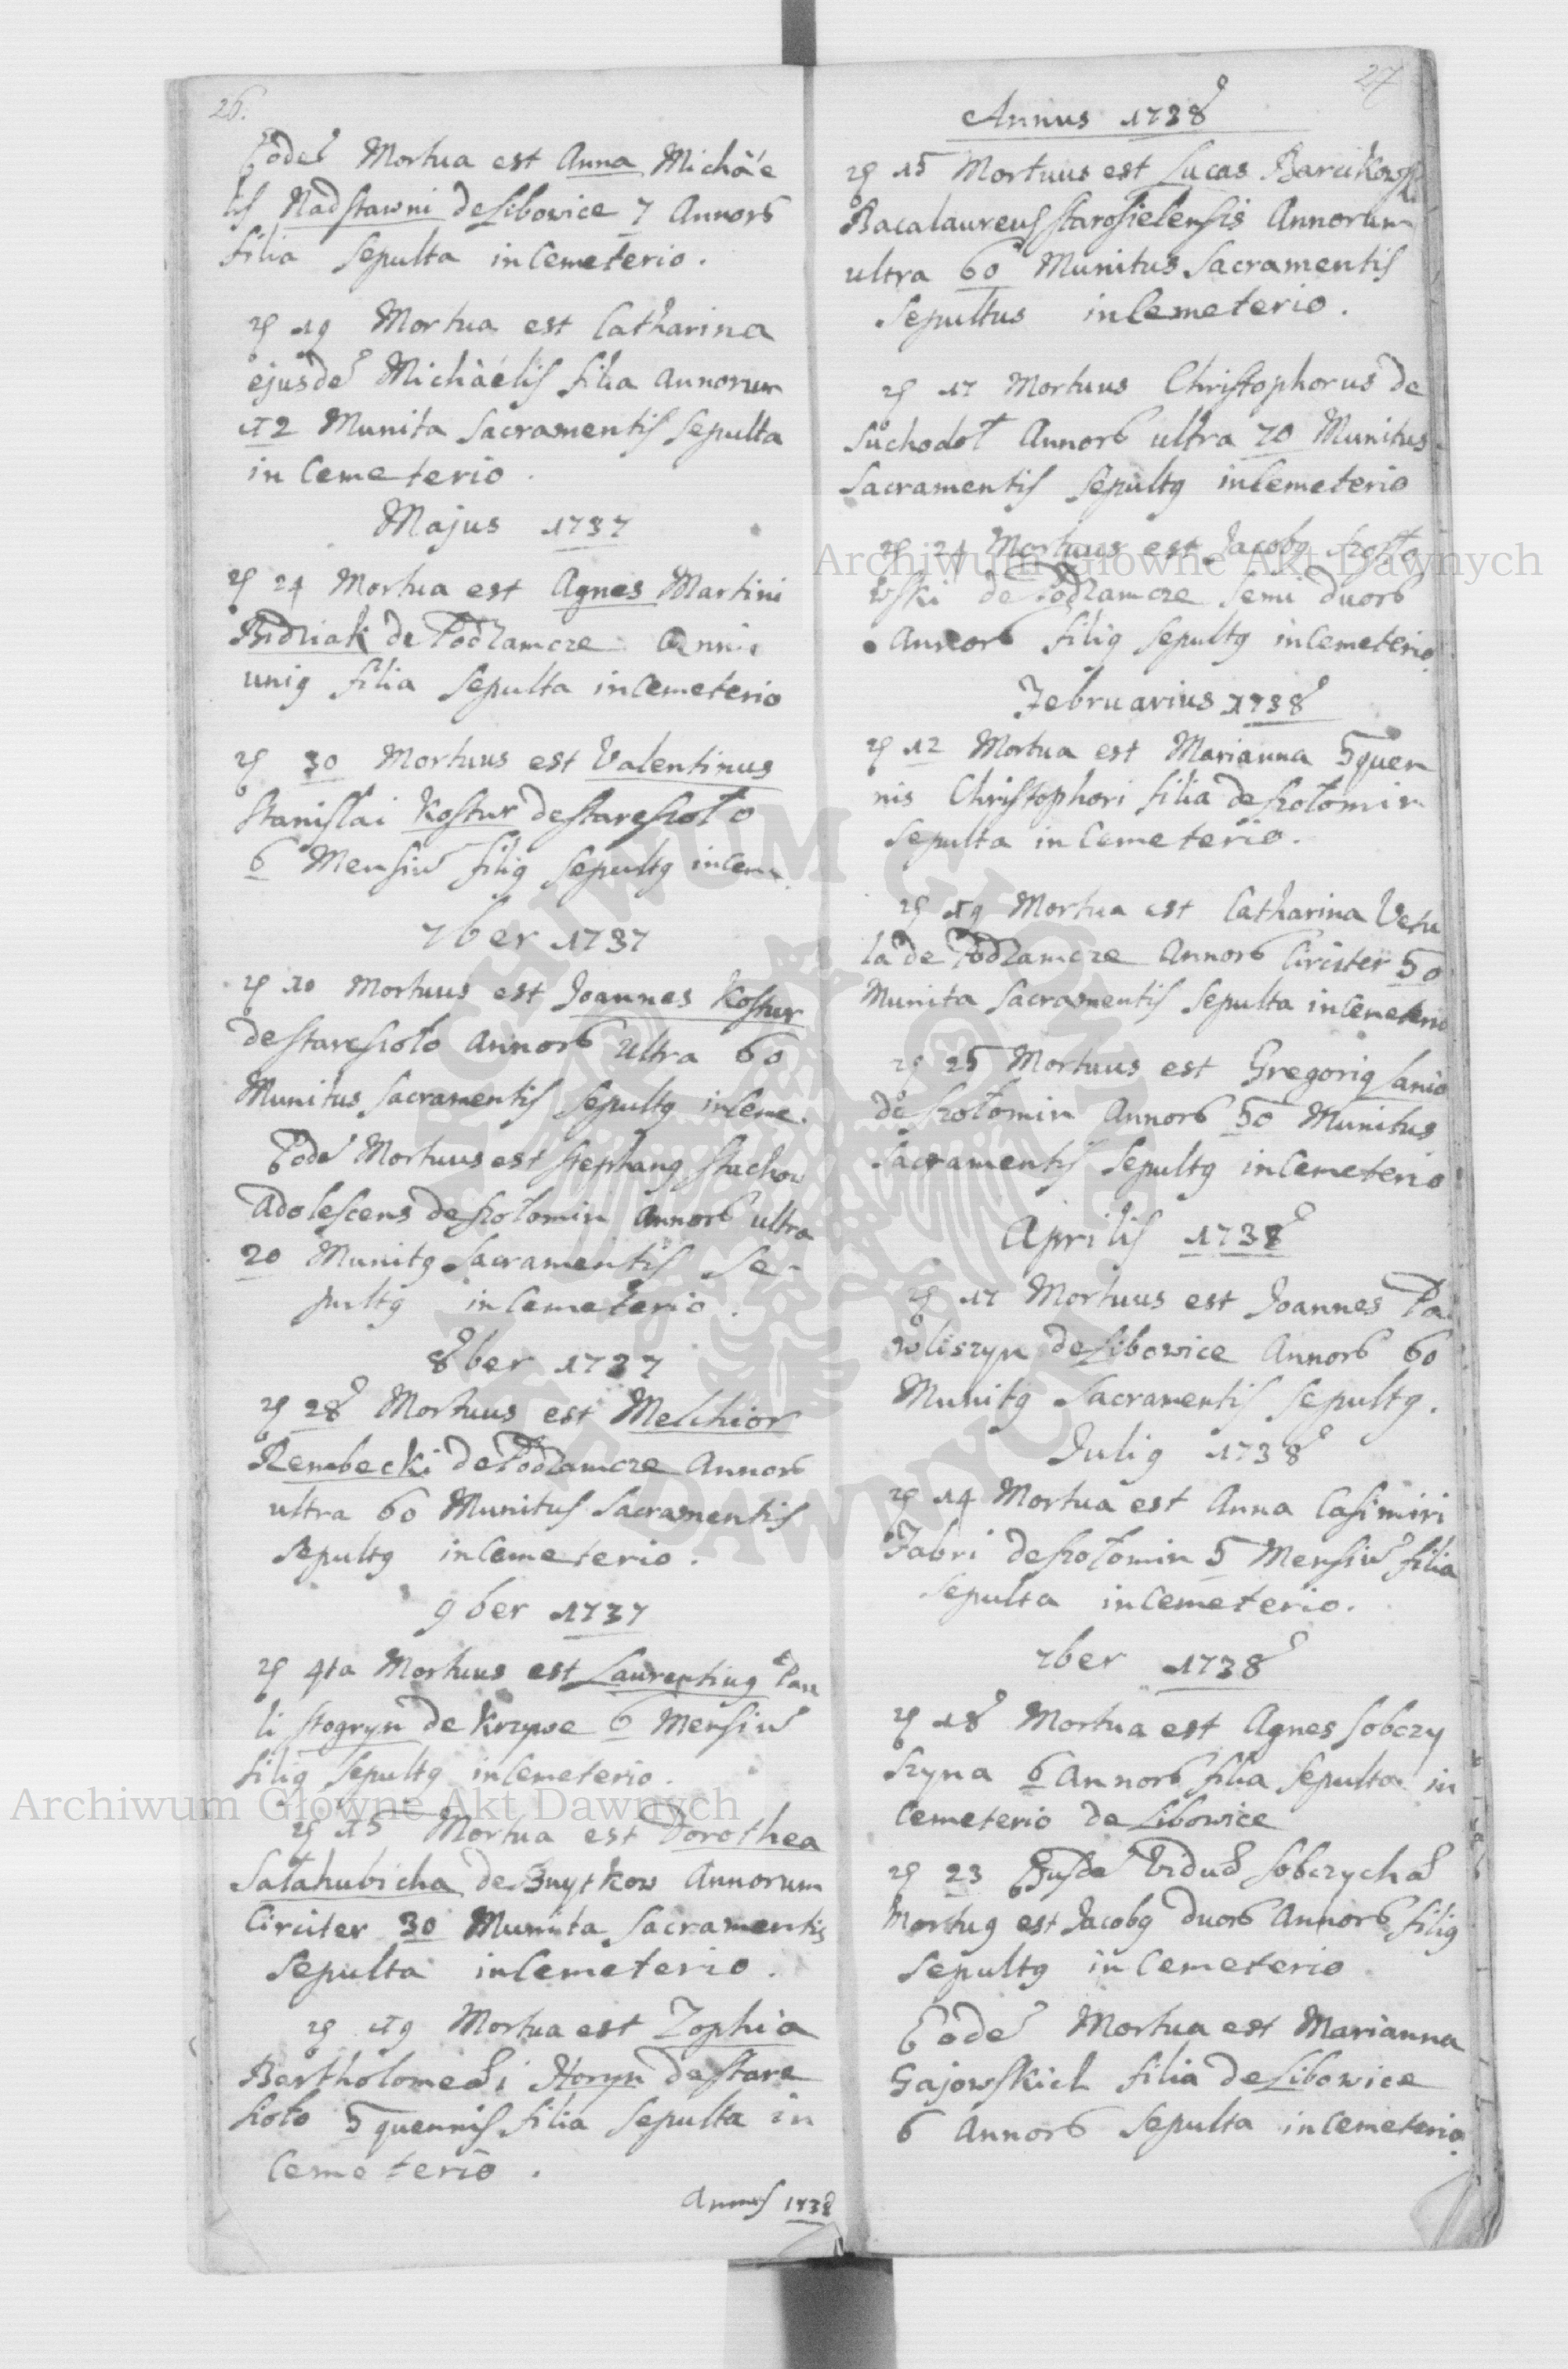 26.
Eode Mortua est Anna Michae
lis Nadstawni de Libowice 7 Annor
filia Sepulta in Cemeterio.
19 Mortua est Catharina
ejusde Michaelis filia Annorum
12 Munita Sacramentis Sepulta
in Cemeterio.
Majus 1737
24 Mortua est Agnes Martini
de Podzamcze
unig filia Sepulta in Cemeterio
30 Mortuus est Valentinus
Stanislai Kostur de Staresioło
6 Mensiu filig Sepultg in Cem.
7ber 1737
10 Mortuus est Joannes Kostur
de Staresioło Annor ultra 60
Munitus Sacramentis Sepultg in Ceme.
Eode Mortuus est Stephang Stachow
Adolescens de Szołomin Annor ultra
20 Munitg Sacramentis Se-
pultg in Cemeterio.
8ber 1737
28 Mortuus est Melchior
Rembecki de Podzamcze Annor
ultra 60 Munitus Sacramentis
Sepultg in Cemeterio.
9ber 1737
4ta Mortuus est Laurenting Pau
li Stogryn de Krzywe 6 Mensiu
filig Sepultg in Cemeterio.
15 Mortua est Dorothea
Sałahubicha de Annorum
Circiter 30 Munita Sacramentis
Sepulta in Cemeterio.
19 Mortua est Zophia
Bartholomei Horyn de Stare
sioło 5quennis filia Sepulta in
Cemeterio.
Annus 1738
27
Annus 1738
15 Mortuus est Lucas Barcikowski
Bacalaureus Starosielensis Annorum
ultra 60 Munitus Sacramentis
Sepultus in Cemeterio.
17 Mortuus Christophorus de
Suchodoł Annor ultra 70 Munitus
Sacramentis Sepultg in Cemeterio
24 Mortuus est Jacobg
wski de Podzamcze Semi duor
Annor filig Sepultg in Cemeterio.
Februarius 1738
12 Mortua est Marianna 5quen
nis Christophori filia de Szołomin
Sepulta in Cemeterio.
19 Mortua est Catharina Vetu
la de Podzamcze Annor Circiter 50
Munita Sacramentis Sepulta in Cemeterio
25 Mortuus est Gregorig Lanio
de Szołomin Annor 50 Munitus
Sacramentis Sepultg in Cemeterio
Aprilis 1738
17 Mortuus est Joannes Pa
wliszyn de Libowice Annor 60
Munitg Sacramentis Sepultg.
Julig 1738
14 Mortua est Anna Casimiri
Fabri de Szołomin 5 Mensiu filia
Sepulta in Cemeterio.
7ber 1738
18 Mortua est Agnes Sobczy
szyna 6 Annor filia Sepulta in
Cemeterio de Libowice
23 Ejusde Vidua Sobczycha
Mortug est Jacobg duor Annor filig
Sepultg in Cemeterio
Eode Mortua est Marianna
Gajowskich filia de Libowice
6 Annor Sepulta in Cemeterio.
Archiwum Główne Akt Dawnych
Archiwum Główne Akt Dawnych
ARCHIWUM GŁÓWNE AKT DAWNYCH